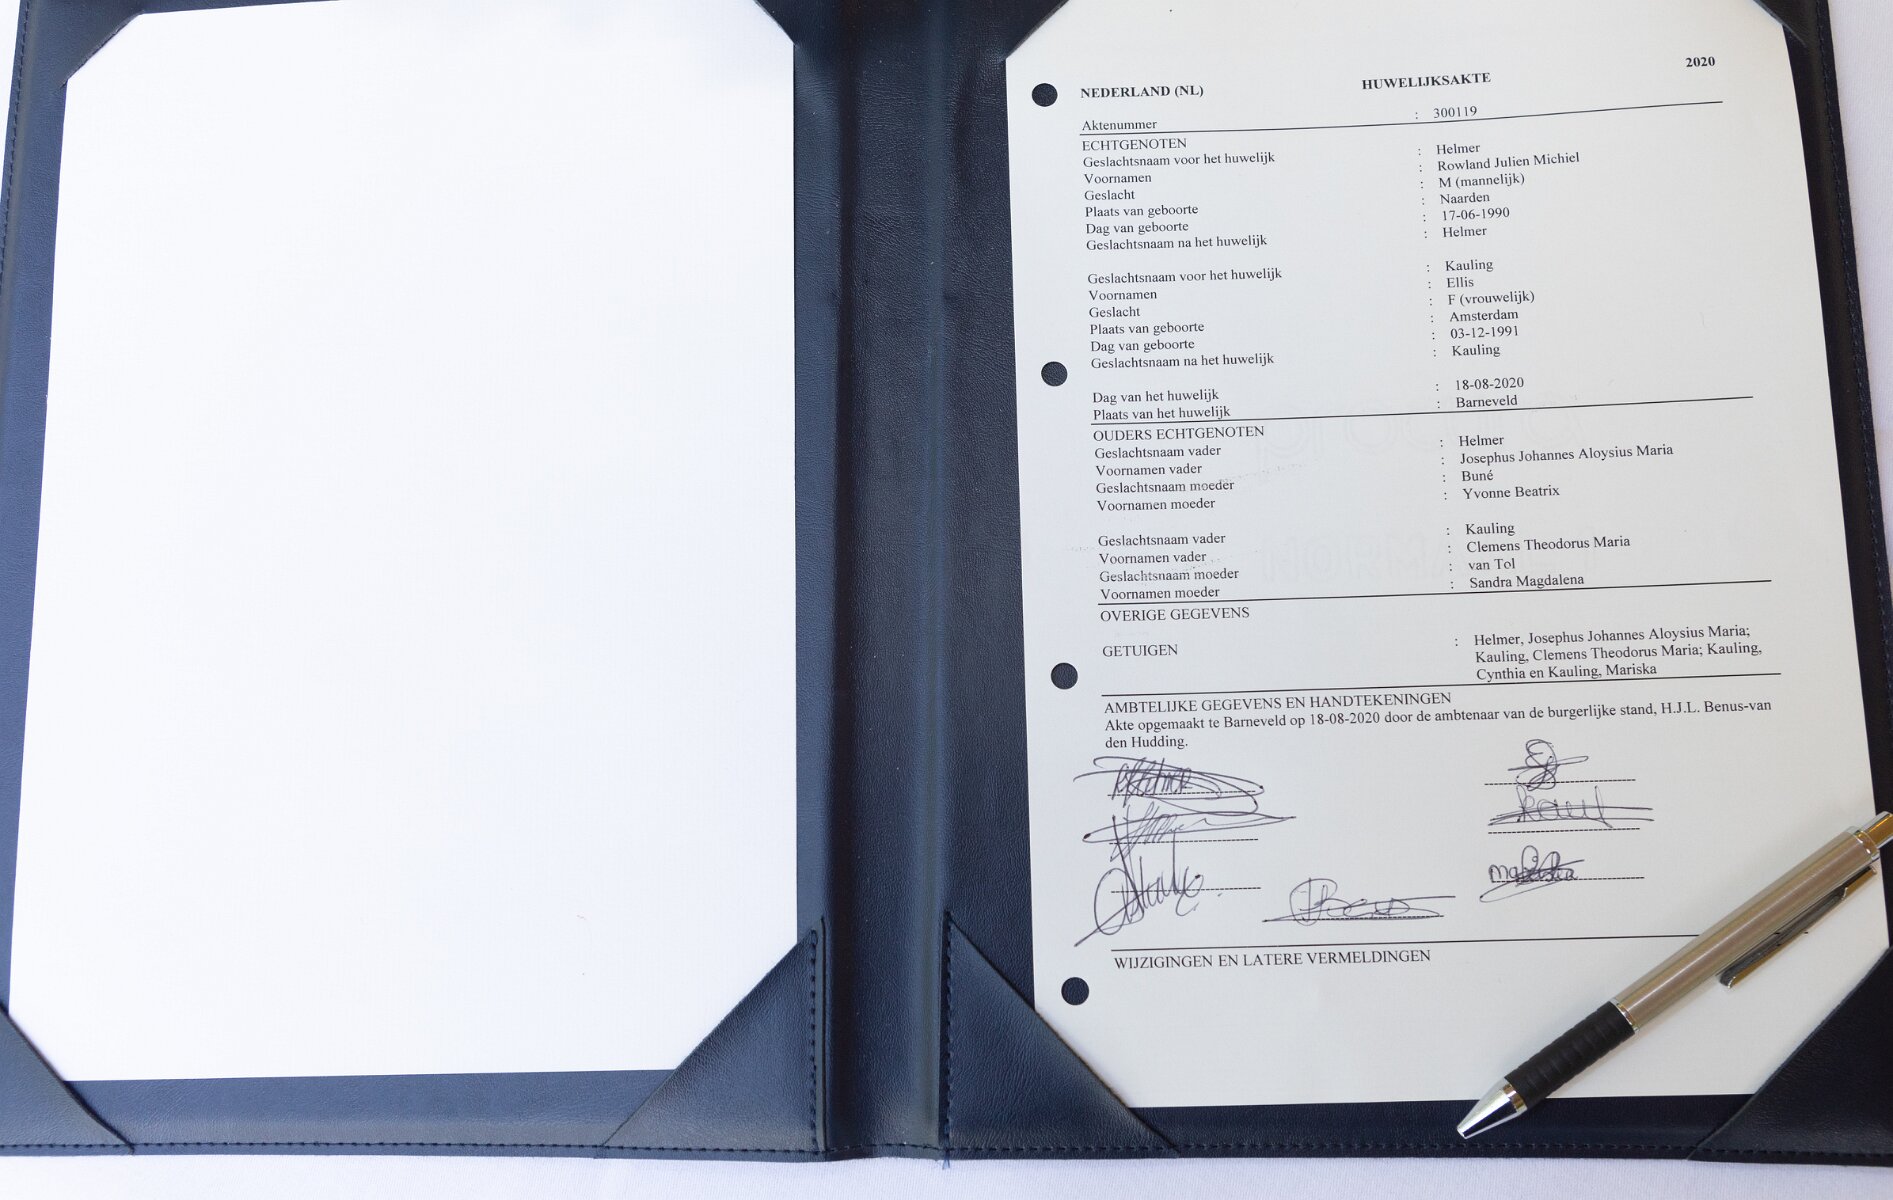 NEDERLAND (NL) HUWELIJKSAKTE 2020
Aktenummer : 300119
ECHTGENOTEN
Geslachtsnaam voor het huwelijk : Helmer
Voornamen : Rowland Julien Michiel
Geslacht : M (mannelijk)
Plaats van geboorte : Naarden
Dag van geboorte : 17-06-1990
Geslachtsnaam na het huwelijk : Helmer
Geslachtsnaam voor het huwelijk : Kauling
Voornamen : Ellis
Geslacht : F (vrouwelijk)
Plaats van geboorte : Amsterdam
Dag van geboorte : 03-12-1991
Geslachtsnaam na het huwelijk : Kauling
Dag van het huwelijk : 18-08-2020
Plaats van het huwelijk : Barneveld
OUDERS ECHTGENOTEN
Geslachtsnaam vader : Helmer
Voornamen vader : Josephus Johannes Aloysius Maria
Geslachtsnaam moeder : Buné
Voornamen moeder : Yvonne Beatrix
Geslachtsnaam vader : Kauling
Voornamen vader : Clemens Theodorus Maria
Geslachtsnaam moeder : van Tol
Voornamen moeder : Sandra Magdalena
OVERIGE GEGEVENS
GETUIGEN : Helmer, Josephus Johannes Aloysius Maria;
Kauling, Clemens Theodorus Maria; Kauling,
Cynthia en Kauling, Mariska
AMBTELIJKE GEGEVENS EN HANDTEKENINGEN
Akte opgemaakt te Barneveld op 18-08-2020 door de ambtenaar van de burgerlijke stand, H.J.L. Benus-van
den Hudding.
WIJZIGINGEN EN LATERE VERMELDINGEN